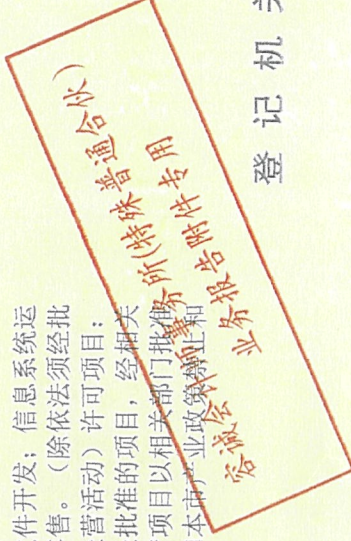 件开发；信息系统运
售。（除依法须经批
营活动）许可项目：
批准的项目，经相关
项目以相关部门批准
本市产业政策禁止和
容诚会计师事务所(特殊普通合伙)
业务报告附件专用
登 记 机 关